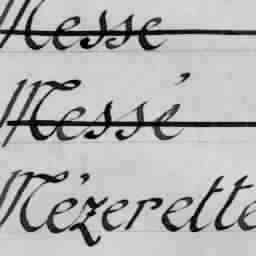 Messe
Messé
Mézerette